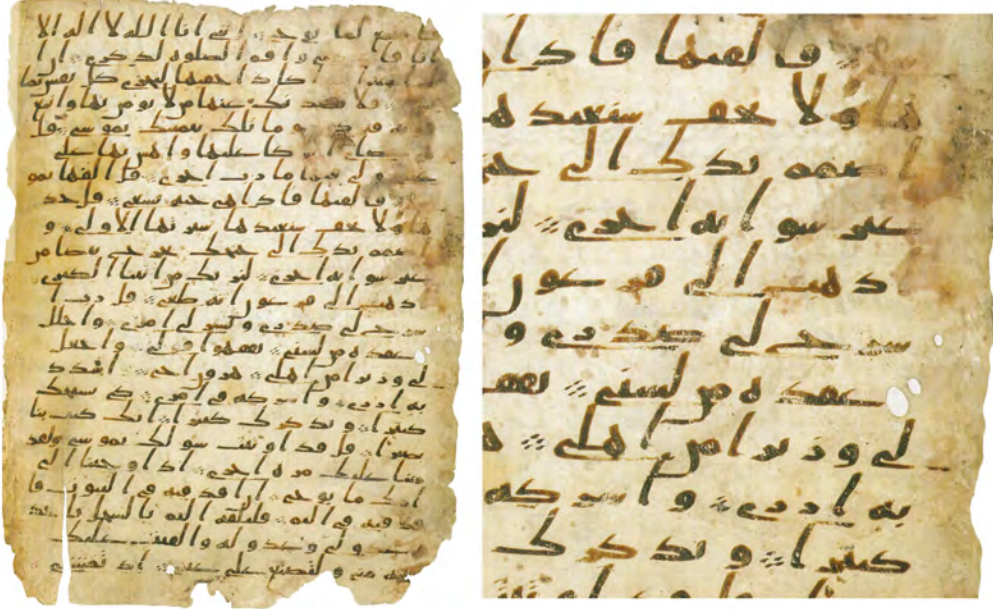 لما يوحى ∴ انني انا الله لا اله الا
انا فا ني واقم الصلوه لذكري ∴ ان ا
اكاد اخفيها لتجزى كل نفس بما
فلا يصدنك عنها من لا يومن بها واتبع
فتردى ∴ وما تلك بيمينك يموسى ∴ قل
عصاي ا كا عليها واهش بها على
ولي فيها مارب اخرى ∴ قل القها يمو
فالقيها فاذا هي حيه تسعى ∴ قل خذ
ها ولا تخف سنعيدها سيرتها الاولى ∴ و
اضمم يدك الى جناحك تخرج بيضا من
غير سوا ايه اخرى ∴ لنريك من ايتنا الكبرى
اذهب الى فرعون انه طغى ∴ قل رب ا
شرح لي صدري ويسر لي امري ∴ واحلل
عقده من لسني ∴ يفقهوا قولي ∴ واجعل
لي وزيرا من اهلي ∴ هرون اخي ∴ اشدد
به ازري ∴ واشركه في امري ∴ كي نسبحك
كثيرا ∴ ونذكرك كثيرا ∴ انك كنت بنا
بصيرا ∴ قل قد اوتيت سولك يموسى ولقد
مننا عليك مره اخرى ∴ اذ اوحينا الى
امك ما يوحى ∴ ان اقذفيه في التبوت فا
قذفيه في اليم ∴ فليلقه اليم بالسحل ياخذه
عدو لي وعدو له والقيت عليك
محبه مني ولتصنع على عيني ∴ اذ تمشي
فالقيها فاذا
ها ولا تخف سنعيدها
اضمم يدك الى جنـ
غير سوا ايه اخرى ∴ لنر
اذهب الى فرعون ا
شرح لي صدري و
عقده من لسني ∴ يفقهـ
لي وزيرا من اهلي ∴ هـ
به ازري ∴ واشركه
كثيرا ∴ ونذكرك